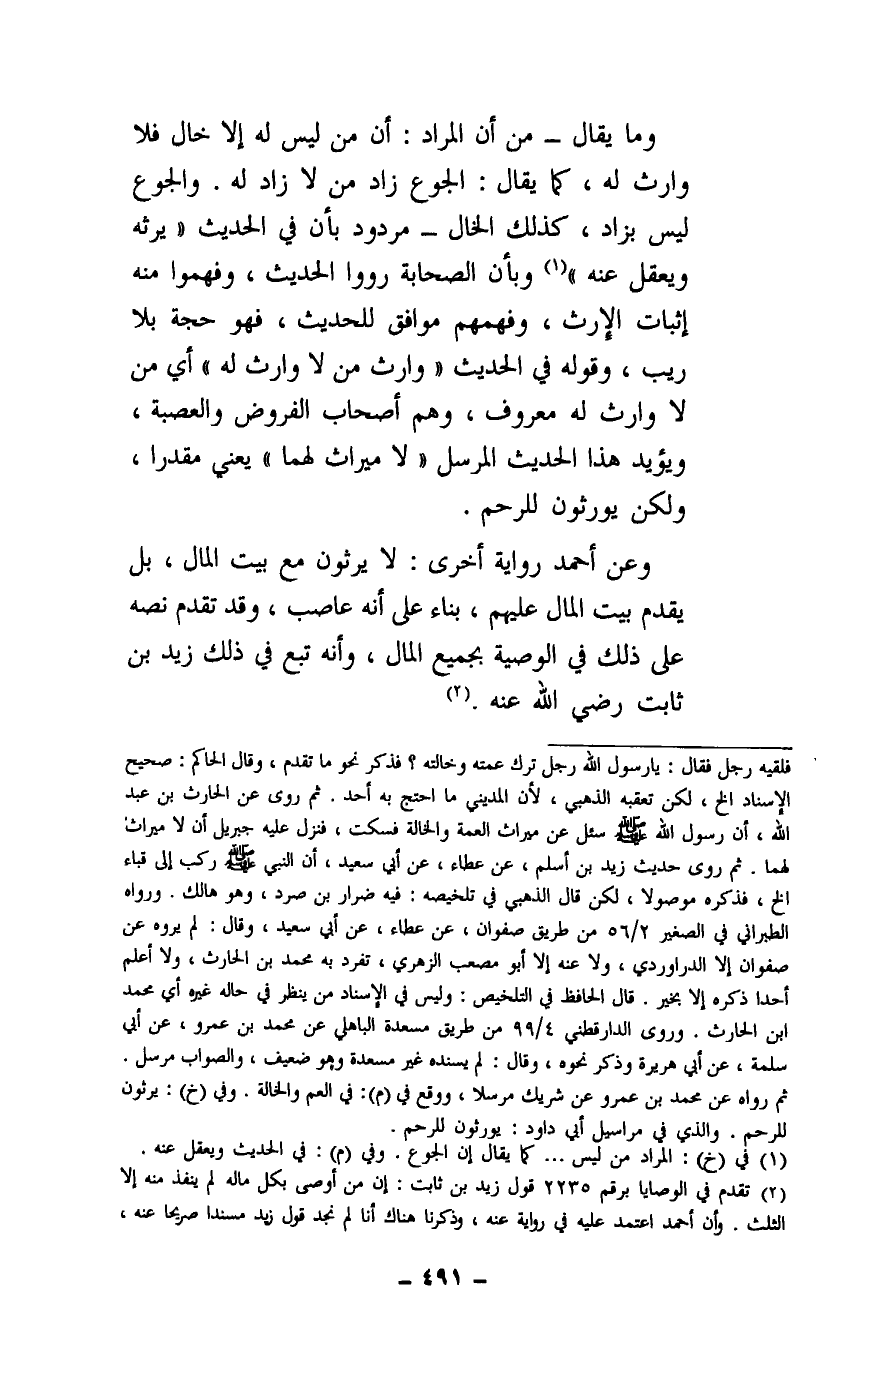 وما يقال – من أن المراد : أن من ليس له إلا خال فلا
وارث له ، كما يقال : الجوع زاد من لا زاد له . والجوع
ليس بزاد ، كذلك الخال – مردود بأن في الحديث « يرثه
ويعقل عنه »(١) وبأن الصحابة رووا الحديث ، وفهموا منه
إثبات الإرث ، وفهمهم موافق للحديث ، فهو حجة بلا
ريب ، وقوله في الحديث « وارث من لا وارث له » أي من
لا وارث له معروف ، وهم أصحاب الفروض والعصبة ،
ويؤيد هذا الحديث المرسل « لا ميراث لهما » يعني مقدرا ،
ولكن يورثون للرحم .
وعن أحمد رواية أخرى : لا يرثون مع بيت المال ، بل
يقدم بيت المال عليهم ، بناء على أنه عاصب ، وقد تقدم نصه
على ذلك في الوصية بجميع المال ، وأنه تبع في ذلك زيد بن
ثابت رضي الله عنه .(٢)
فلقيه رجل فقال : يارسول الله رجل ترك عمته وخالته ؟ فذكر نحو ما تقدم ، وقال الحاكم : صحيح
الإسناد الخ ، لكن تعقبه الذهبي ، لأن المديني ما احتج به أحد . ثم روى عن الحارث بن عبد
الله ، أن رسول الله ﷺ سئل عن ميراث العمة والخالة فسكت ، فنزل عليه جبريل أن لا ميراث
لهما . ثم روى حديث زيد بن أسلم ، عن عطاء ، عن أبي سعيد ، أن النبي ﷺ ركب إلى قباء
الخ ، فذكره موصولا ، لكن قال الذهبي في تلخيصه : فيه ضرار بن صرد ، وهو هالك . ورواه
الطبراني في الصغير ٥٦/٢ من طريق صفوان ، عن عطاء ، عن أبي سعيد ، وقال : لم يروه عن
صفوان إلا الدراوردي ، ولا عنه إلا أبو مصعب الزهري ، تفرد به محمد بن الحارث ، ولا أعلم
أحدا ذكره إلا بخير . قال الحافظ في التلخيص : وليس في الإسناد من ينظر في حاله غيره أي محمد
ابن الحارث . وروى الدارقطني ٩٩/٤ من طريق مسعدة الباهلي عن محمد بن عمرو ، عن أبي
سلمة ، عن أبي هريرة وذكر نحوه ، وقال : لم يسنده غير مسعدة وهو ضعيف ، والصواب مرسل .
ثم رواه عن محمد بن عمرو عن شريك مرسلا ، ووقع في (م): في العم والخالة . وفي (خ) : يرثون
للرحم . والذي في مراسيل أبي داود : يورثون للرحم .
(١) في (خ) : المراد من ليس ... كما يقال إن الجوع . وفي (م) : في الحديث ويعقل عنه .
(٢) تقدم في الوصايا برقم ٢٢٣٥ قول زيد بن ثابت : إن من أوصى بكل ماله لم ينفذ منه إلا
الثلث . وأن أحمد اعتمد عليه في رواية عنه ، وذكرنا هناك أنا لم نجد قول زيد مسندا صريحا عنه ،
– ٤٩١ –